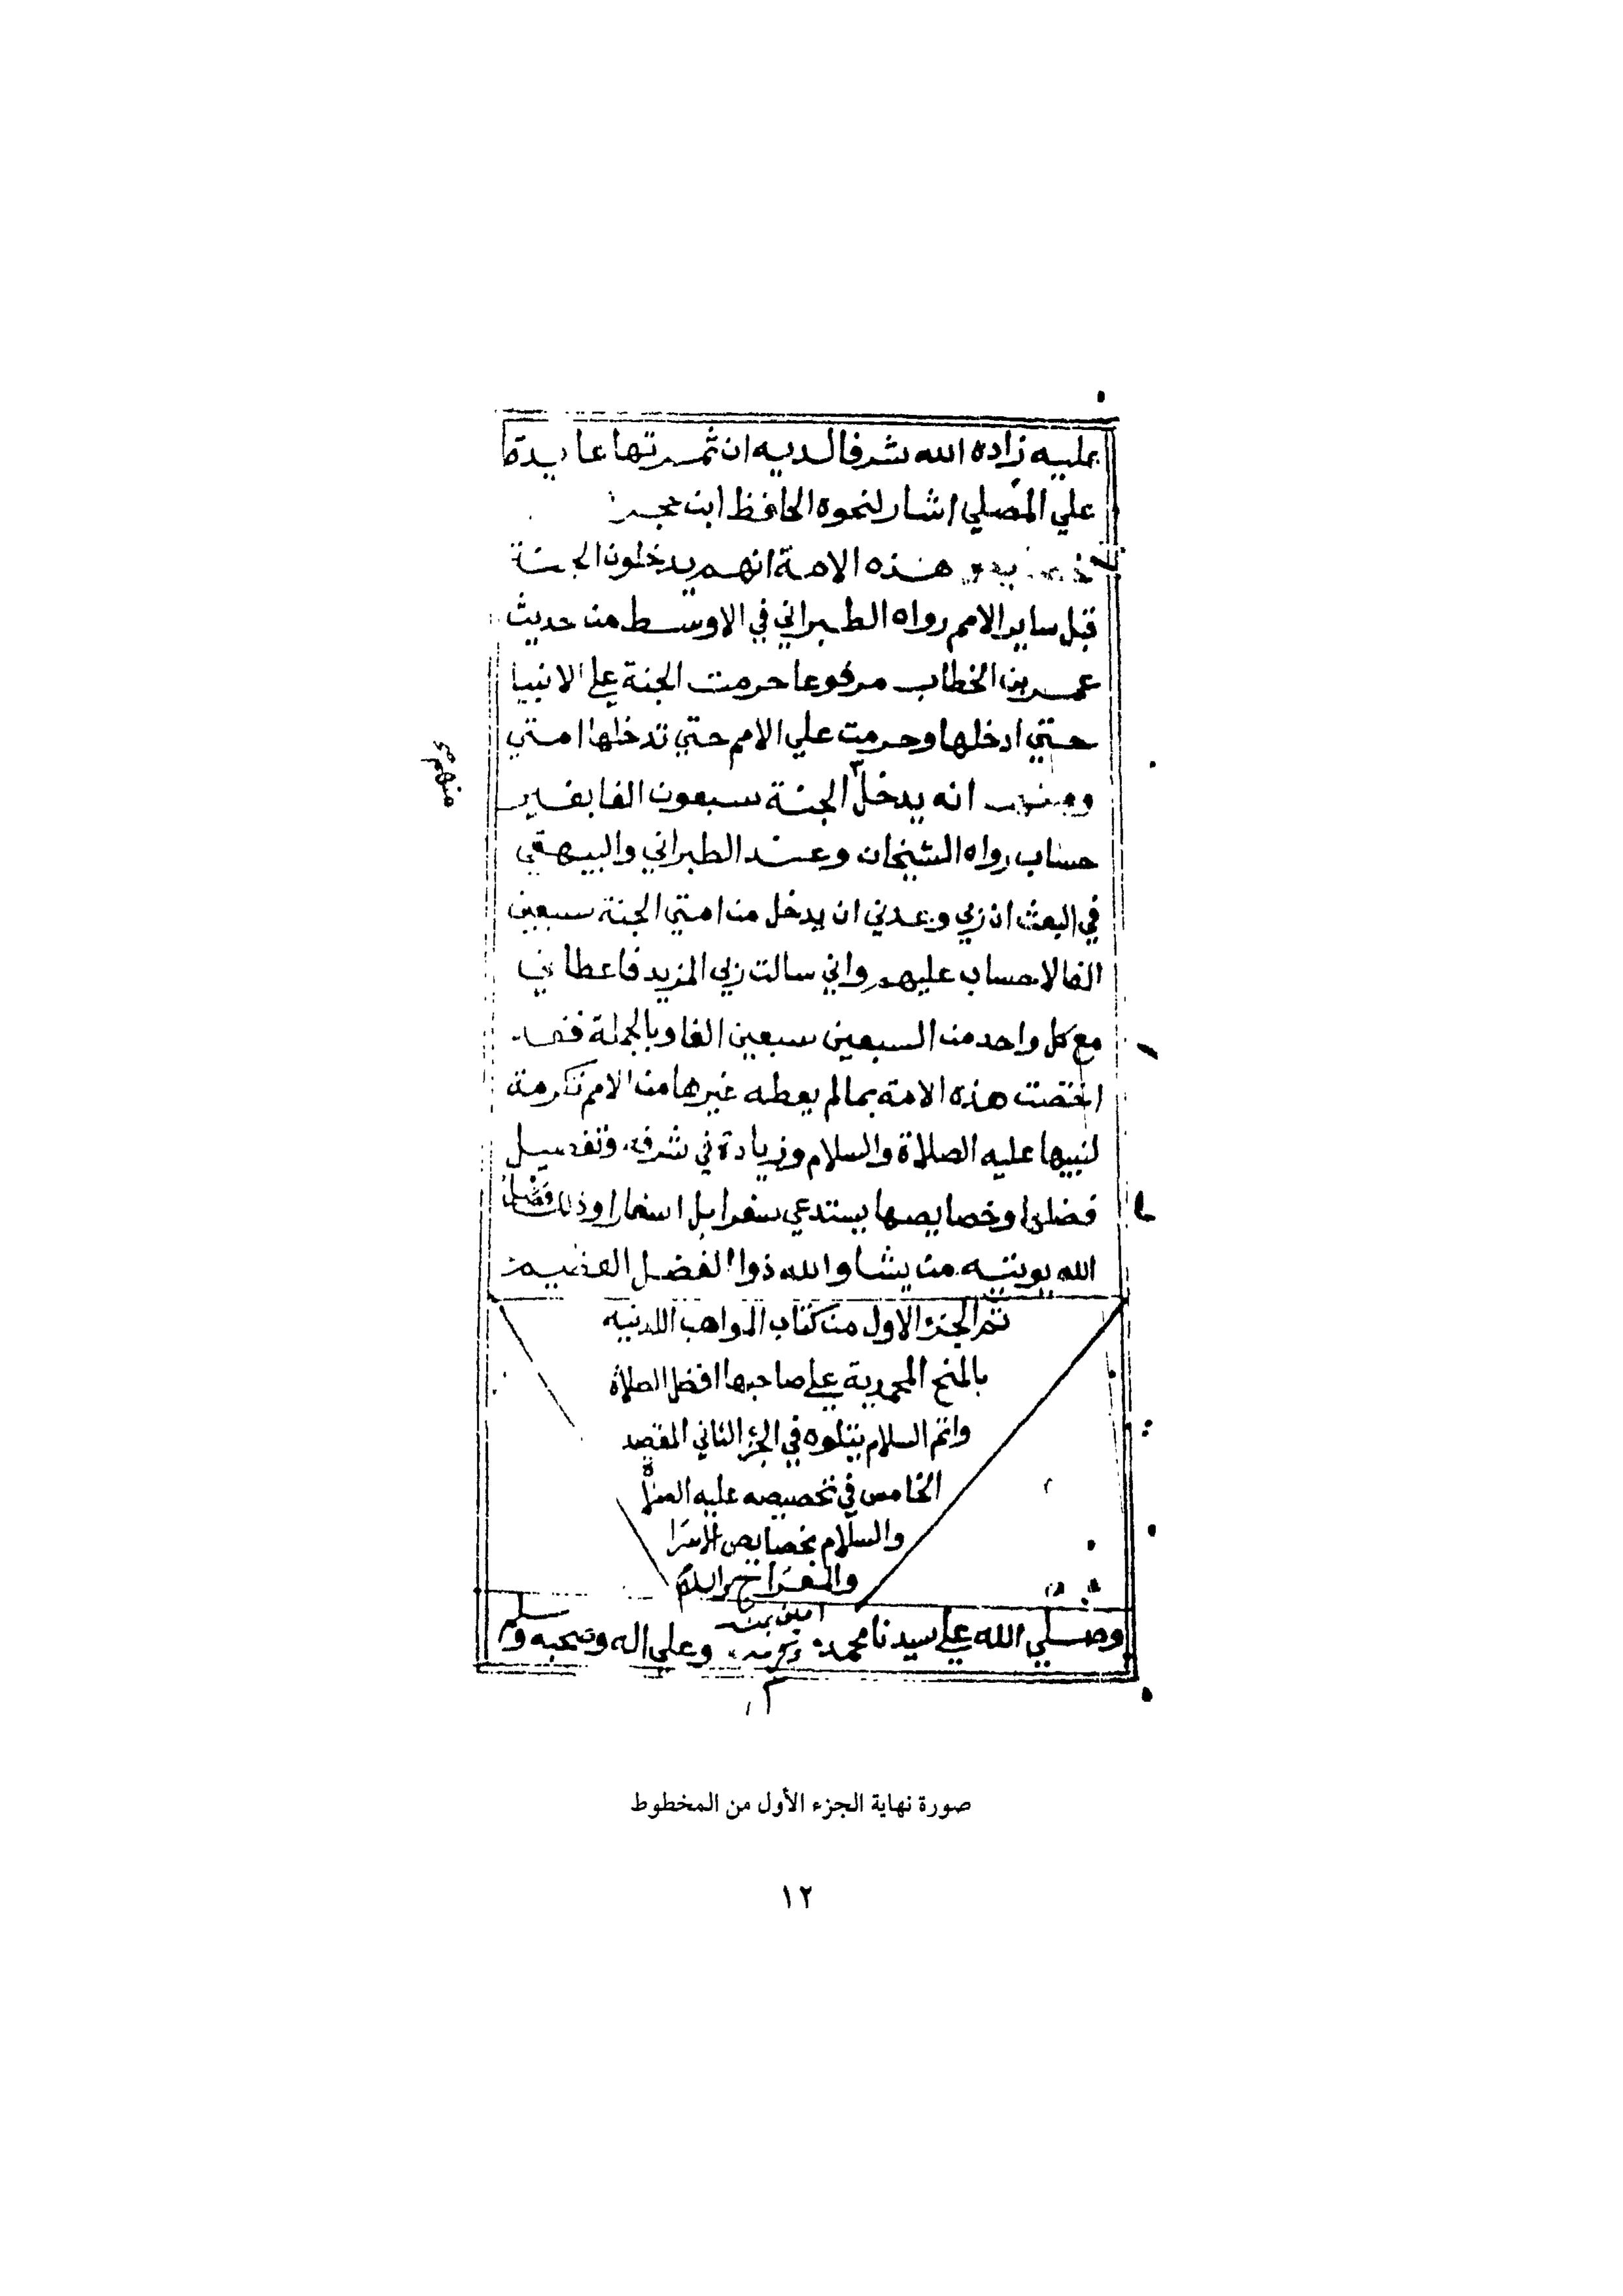 عليه زاده الله شرفا لديه ان ثمرتها عايدة
علي المصلي اشار لنحوه الحافظ ابن حجر
هذه الامة انهم يدخلون الجنة
قبل ساير الامم رواه الطبراني في الاوسط من حديث
عمر بن الخطاب مرفوعا حرمت الجنة علي الانبيا
حتي ادخلها وحرمت علي الامم حتي تدخلها امتي
انه يدخل الجنة سبعون الفا بغير
منهم صح
حساب رواه الشيخان وعند الطبراني والبيهقي
في البعث ان ربي وعدني ان يدخل من امتي الجنة سبعين
الفا لا حساب عليهم واني سالت ربي المزيد فاعطاني
مع كل واحد من السبعين سبعين الفا وبالجملة فقد
اختصت هذه الامة بما لم يعطه غيرها من الامم تكرمة
لنبيها عليه الصلاة والسلام وزيادة في شرفه وتفصيل
فضلها وخصايصها يستدعي سفرا بل اسفارا وذلك فضل
الله يوتيه من يشا والله ذوا الفضل العظيم
تم الجزء الاول من كتاب المواهب اللدنيه
بالمنح المحمدية علي صاحبها افضل الصلاة
واتم السلام يتلوه في الجزء الثاني المقصد
الخامس في تخصيصه عليه الصلاة
والسلام بخصايص الاسرا
والمعراج
امين
وصلي الله علي سيدنا محمد وعلي اله وصحبه وسلم
صورة نهاية الجزء الأول من المخطوط
١٢